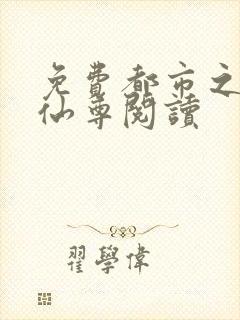 免費都市之
仙尊閱讀
翟學偉